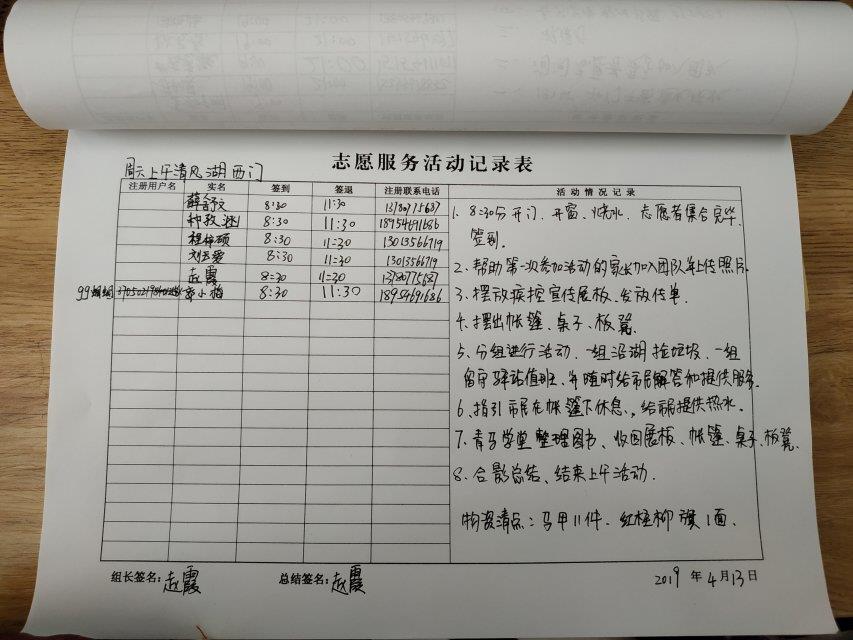 志愿服务活动记录表
周六上午清风湖西门
注册用户名 实名 签到 签退 注册联系电话 活动情况记录
8:30 11:30
8:30 11:30 18954691686
8:30 11:30 13013566719
8:30 11:30 13013566719
赵霞 8:30 11:30
8:30 11:30 18954691686
1. 8:30分开门、开窗、烧水、志愿者集合完毕、
签到.
2、帮助第一次参加活动的家长加入团队并上传照片.
3、摆放疾控宣传展板、发放传单.
4、摆出帐篷、桌子、板凳.
5、分组进行活动、一组沿湖捡垃圾、一组
留守驿站值班、并随时给市民解答和提供服务.
6、指引市民在帐篷下休息、给市民提供热水.
7、青马学堂整理图书、收回展板、帐篷、桌子、板凳.
8、合影总结、结束上午活动.
物资清点:马甲11件. 红柽柳旗1面.
组长签名:赵霞 总结签名:赵霞 2019 年 4 月 13 日